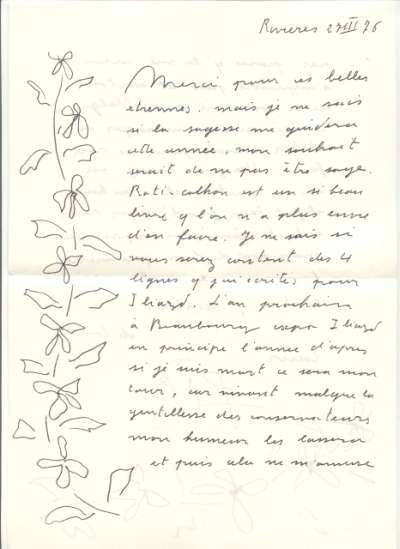 Rivières 27 III 76
Merci pour ces belles
etrennes. mais je ne sais
si la sagesse me guidera
cette année. mon souhait
serait de ne pas être sage.
Rati-calhon est un si beau
livre q l'on n'a plus envie
d'en faire. Je ne sais si
vous serez content des 4
lignes q j'ai ecrites pour
Iliazd. L'an prochain
à Beaubourg expo Iliazd
en principe l'année d'apres
si je suis mort ce sera mon
tour, car vivant malgre la
gentillesse des conservateurs
mon humeur les lassera
et puis cela ne m'amuse